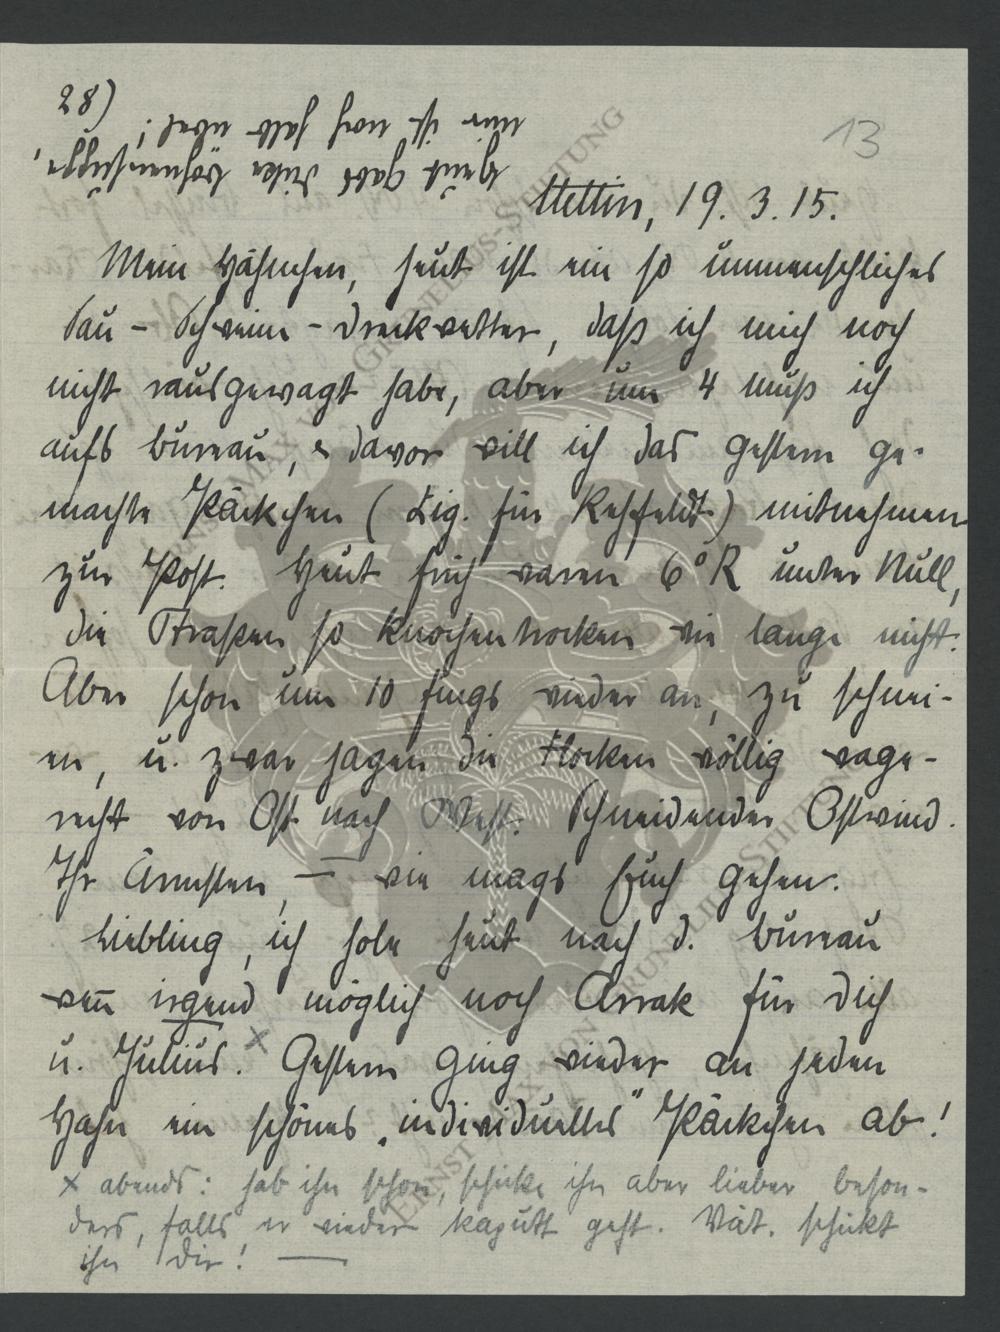 28)
Heut gabs dicke Böhnensuppe,
mir ist noch halb übel!
13
Stettin, 19. 3. 15.
Mein Hähnchen, heut ist ein so unmenschliches
Sau-Schweine-Dreckwetter, daß ich mich noch
nicht rausgewagt habe, aber um 4 muß ich
aufs Bureau, & davor will ich das gestern ge-
machte Päckchen (Zig. für Rehfeldt) mitnehmen
zur Post. Heut früh waren 6° R unter Null,
die Straßen so knochentrocken wie lange nicht.
Aber schon um 10 fings wieder an, zu schnei-
en, u. zwar jagen die Flocken völlig wage-
recht von Ost nach West. Schneidender Ostwind.
Ihr Ärmsten, – wie mags Euch gehen.
Liebling, ich hole heut nach d. Bureau
wen̅ irgend möglich noch Arrak für Dich
u. Julius. x Gestern ging wieder an jeden
Hahn ein schönes „individuelles" Päckchen ab!
x abends: hab ihn schon, schicke ihn aber lieber beson-
ders, falls er wieder kaputt geht. Vät. schickt
ihn Dir! —
ERNST MAX VON GRUNELIUS-STIFTUNG
ERNST MAX VON GRUNELIUS-STIFTUNG